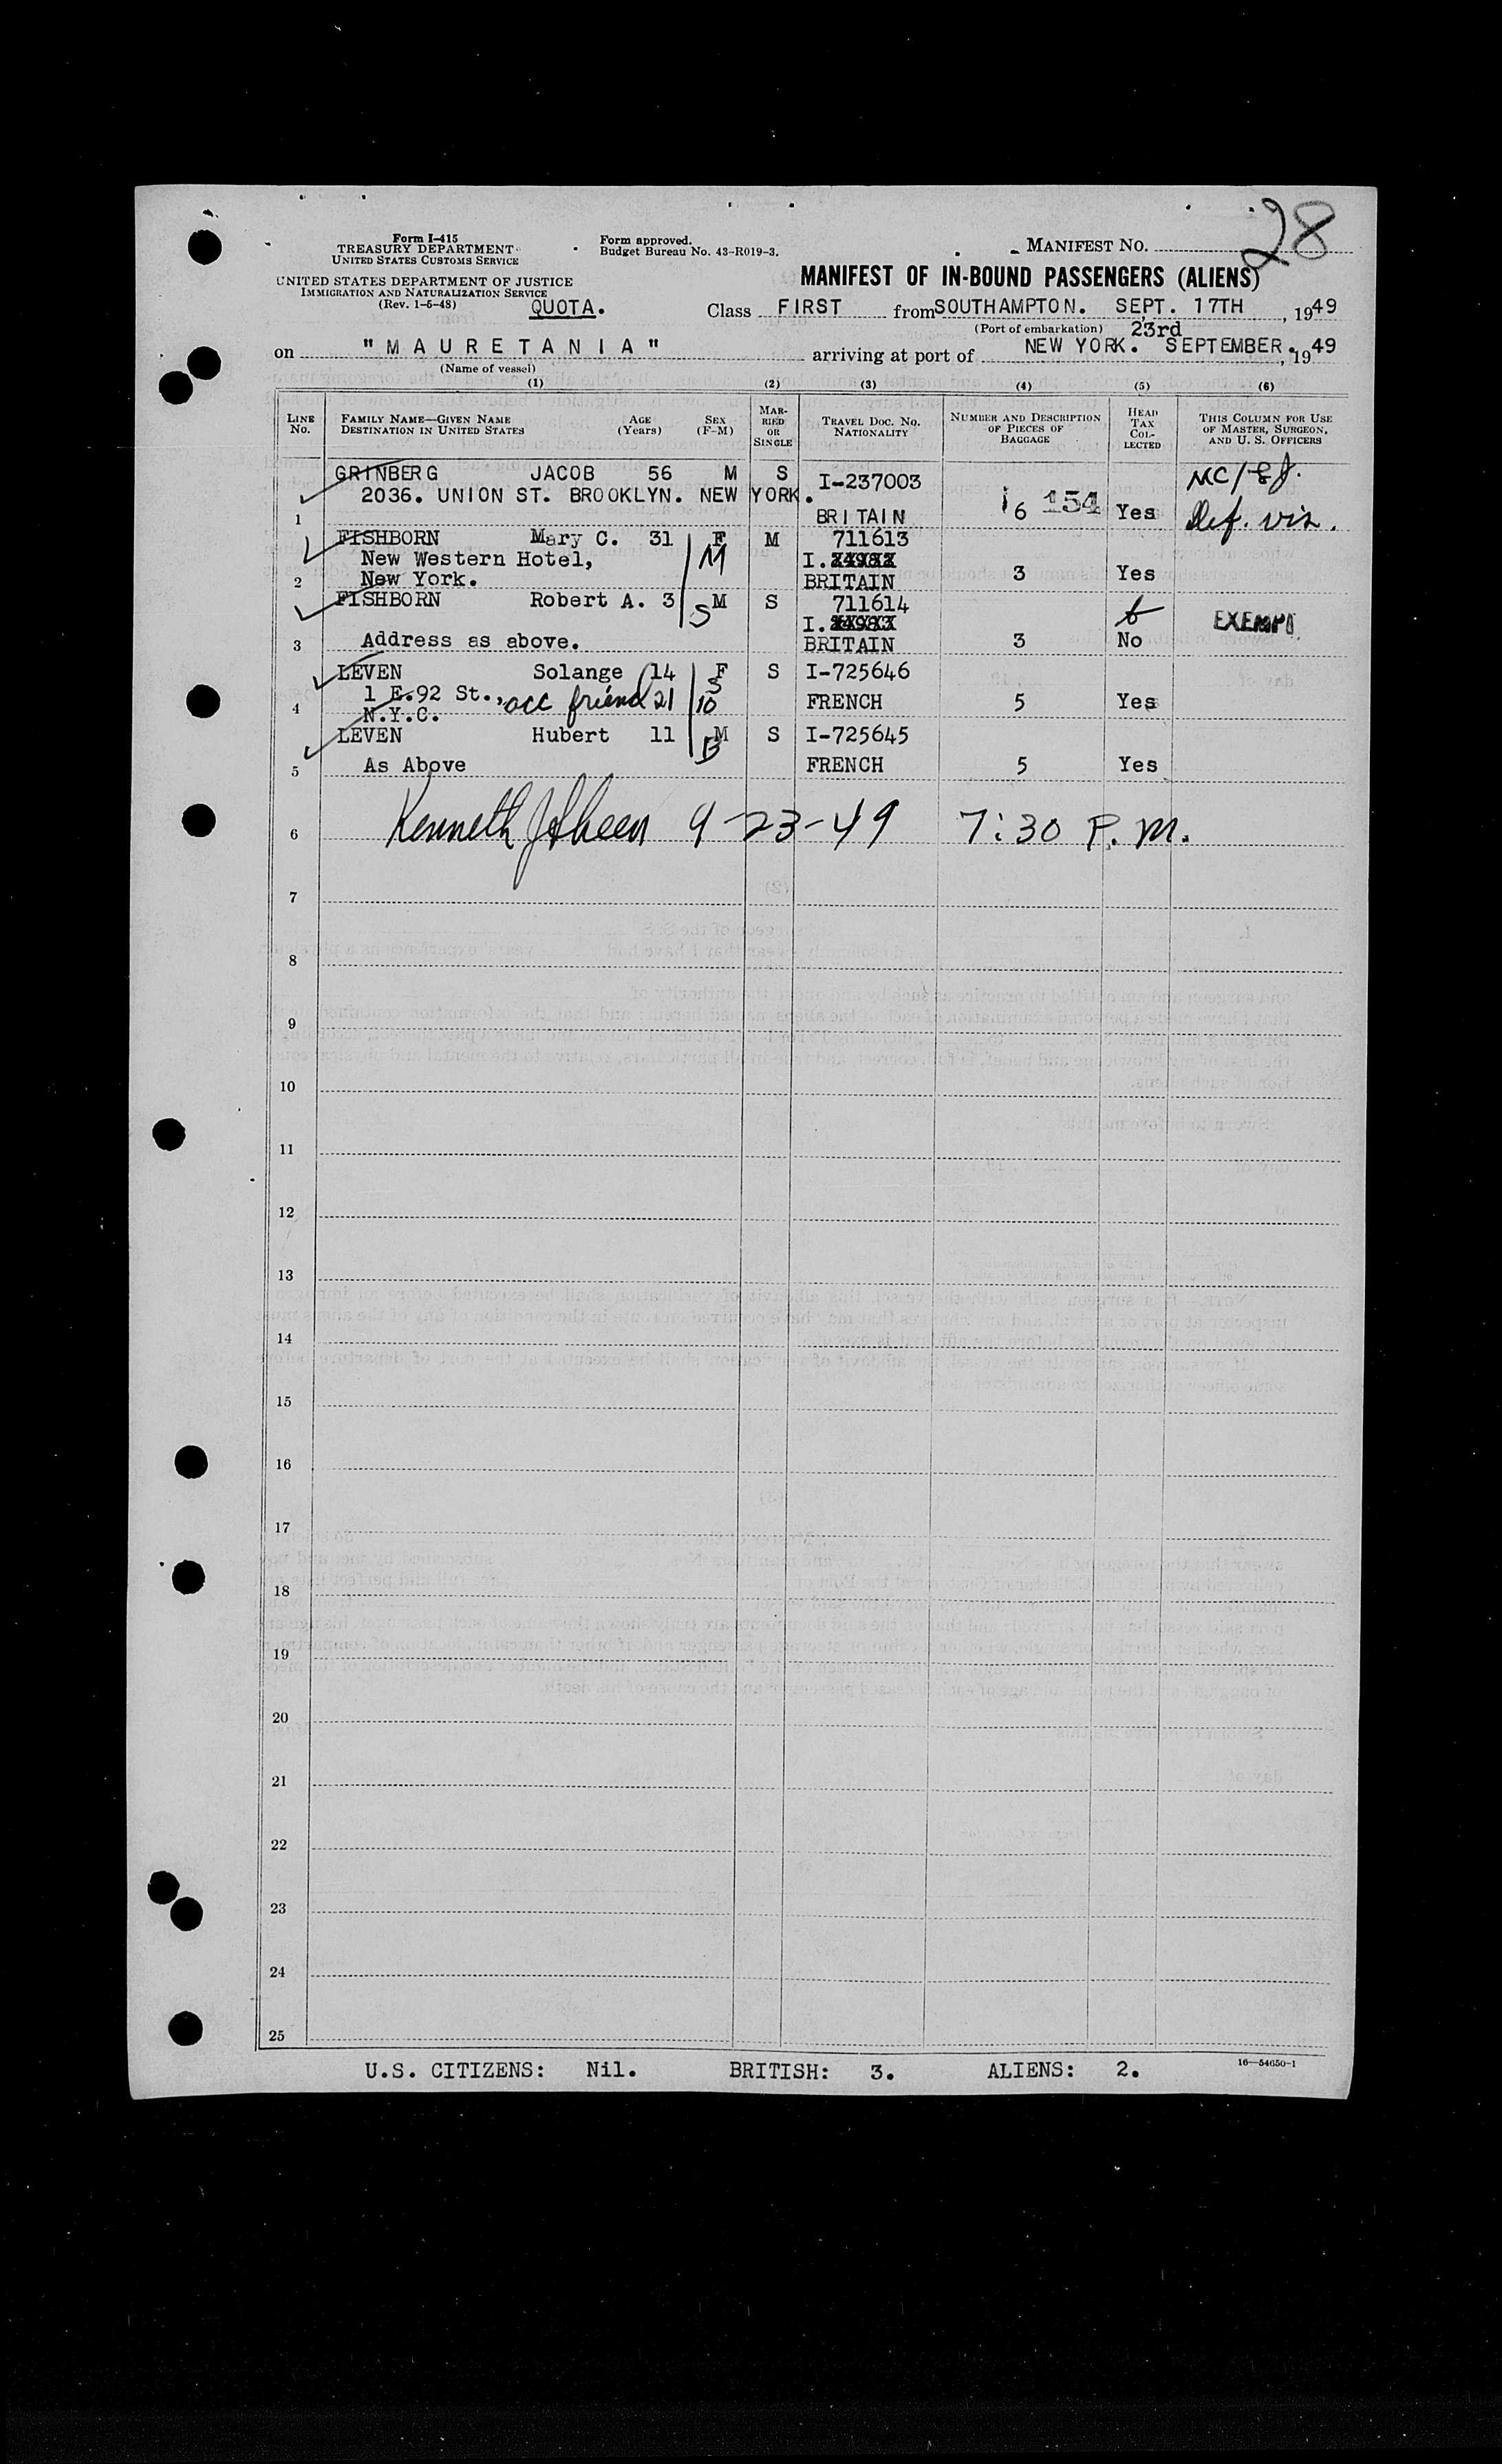 28
Form I-415
TREASURY DEPARTMENT
UNITED STATES CUSTOMS SERVICE
UNITED STATES DEPARTMENT OF JUSTICE
IMMIGRATION AND NATURALIZATION SERVICE
(Rev. 1-5-48)
Form approved.
Budget Bureau No. 43-R019-3.
MANIFEST NO.
MANIFEST OF IN-BOUND PASSENGERS (ALIENS)
QUOTA. Class FIRST from SOUTHAMPTON. SEPT. 17TH, 1949
(Port of embarkation) 23rd
on "MAURETANIA" arriving at port of NEW YORK. SEPTEMBER. 1949
(Name of vessel)
(1) (2) (3) (4) (5) (6)
LINE No. FAMILY NAME—GIVEN NAME DESTINATION IN UNITED STATES AGE (Years) SEX (F-M) MARRIED OR SINGLE TRAVEL DOC. NO. NATIONALITY NUMBER AND DESCRIPTION OF PIECES OF BAGGAGE HEAD TAX COLLECTED THIS COLUMN FOR USE OF MASTER, SURGEON, AND U. S. OFFICERS
GRINBERG JACOB 56 M S I-237003
2036. UNION ST. BROOKLYN. NEW YORK.
1 BRITAIN 6 154 Yes Def. vis.
FISHBORN Mary C. 31 F M 711613
New Western Hotel, M I.
2 New York. BRITAIN 3 Yes
FISHBORN Robert A. 3 M S 711614
S I. EXEMPT
3 Address as above. BRITAIN 3 No
LEVEN Solange 14 F S I-725646
1 E.92 St., acc friend 21 S 10
4 N.Y.C. FRENCH 5 Yes
LEVEN Hubert 11 M S I-725645
5 As Above FRENCH 5 Yes
6 Kenneth 9-23-49 7:30 P.M.
7
8
9
10
11
12
13
14
15
16
17
18
19
20
21
22
23
24
25
U.S. CITIZENS: Nil. BRITISH: 3. ALIENS: 2.
16—54650-1